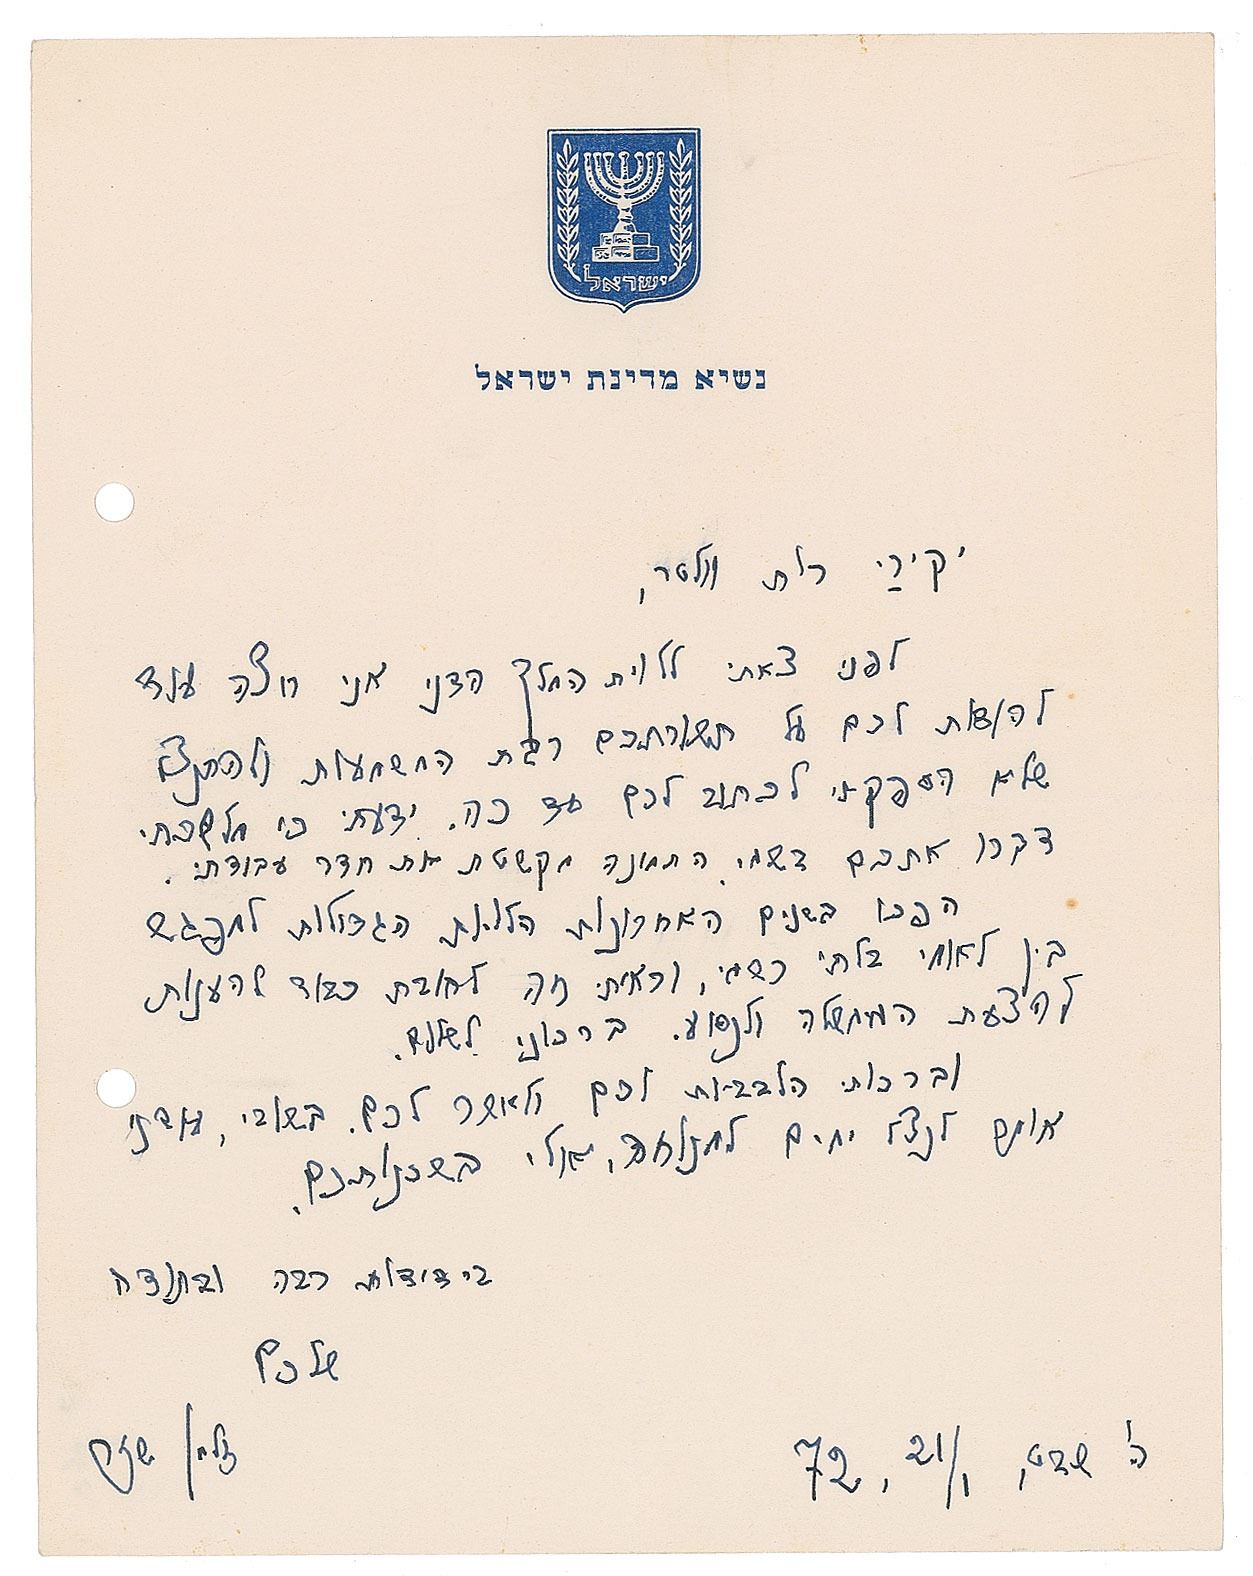 ישראל
נשיא מדינת ישראל
יקירַי רות וולטר,
לפני צאתי ללוית המלך הדני אני רוצה עוד
להודות לכם על תשורתכם רבת המשמעות ולהתנצל
שלא הספקתי לכתוב לכם עד כה. ידעתי כי מלשכתי
דברו אתכם בשמי. התמונה מקשטת את חדר עבודתי.
הפכו בשנים האחרונות הלויות הגדולות למפגש
בין לאומי בלתי רשמי, וראיתי זה לחובת כבוד להענות
להצעת הממשלה ולנסוע. ברכוני לשלום.
וברכותי הלבביות לכם ולאשר לכם. בשובי,
אותם לנצל ימים למנוחה, אולי בשכנותכם.
בידידות רבה ובתודה
שלכם
זלמן שזר
ה' שבט, 21/1, 72